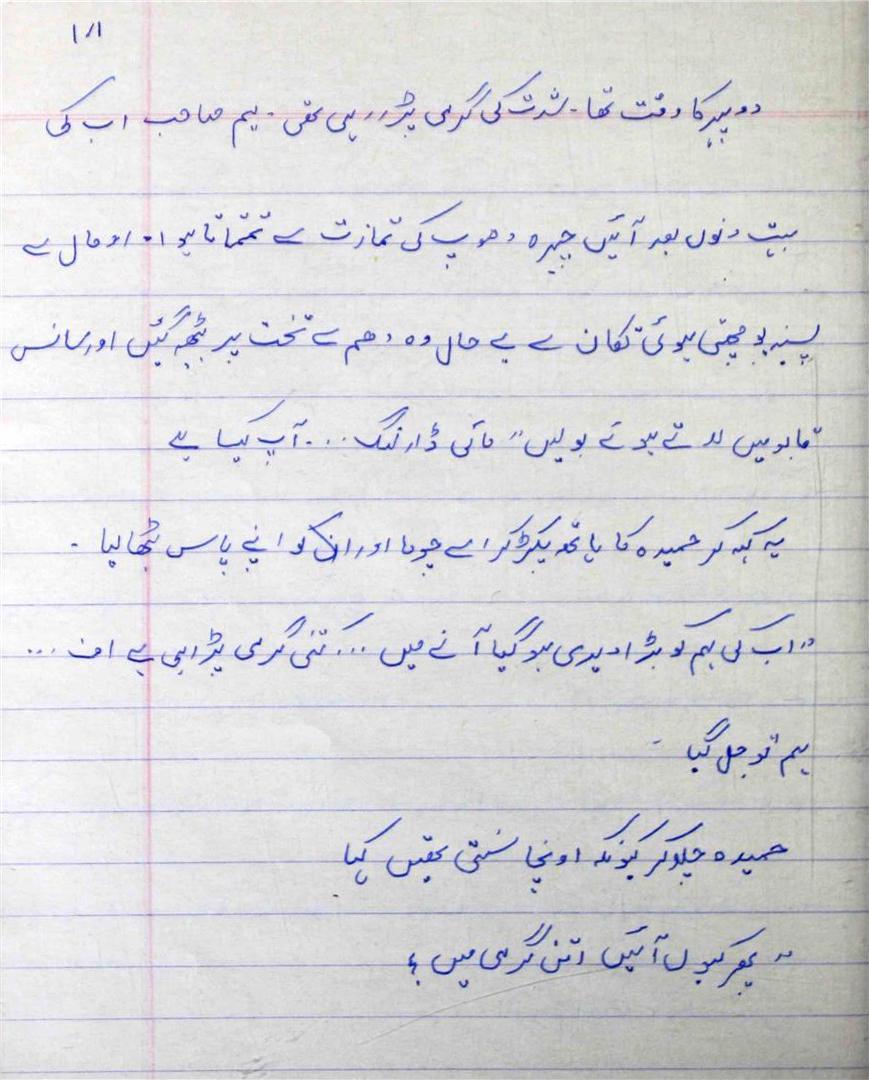 ۱۸۱
دوپہر کا وقت تھا۔ شدت کی گرمی پڑ رہی تھی۔ ہم صاحب اب کی
بہت دنوں بعد آئیں چہرہ دھوپ کی تمازت سے تمتماتا ہوا۔ رومال سے
پسینہ پونچھتی ہوئی تکان سے بے حال وہ دھم سے تخت پر بیٹھ گئیں اور سانس
قابو میں لاتے ہوئے بولیں " مائی ڈارلنگ ... آپ کیسا ہے
یہ کہہ کر حمیدہ کا ہاتھ پکڑ کر اسے چوما اور ان کو اپنے پاس بٹھا لیا۔
"اب کی ہم کو بڑا دیری ہو گیا آنے میں ... کتنی گرمی پڑ رہی ہے اف ...
ہم تو جل گیا ۔
حمیدہ چلا کر کیونکہ اونچا سنتی تھیں کہا
" پھر کیوں آئیں اتنی گرمی میں ؟